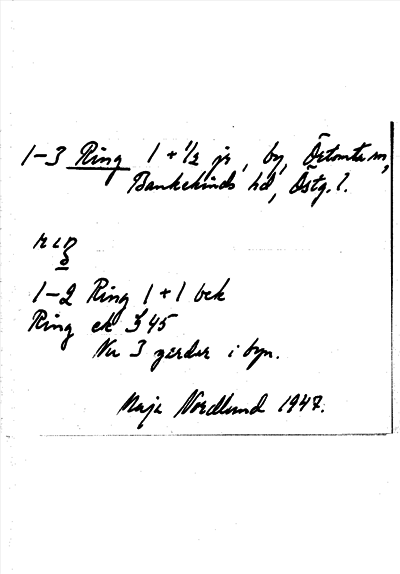 1-3 Ring 1 + 1/2 jr, by, Örtomta sn,
Bankekinds hd, Östg. l.
rıŋ
1-2 Ring 1 + 1 bek
Ring ek 45
Nu 3 gårdar i byn.
Maja Nordlund 1947.